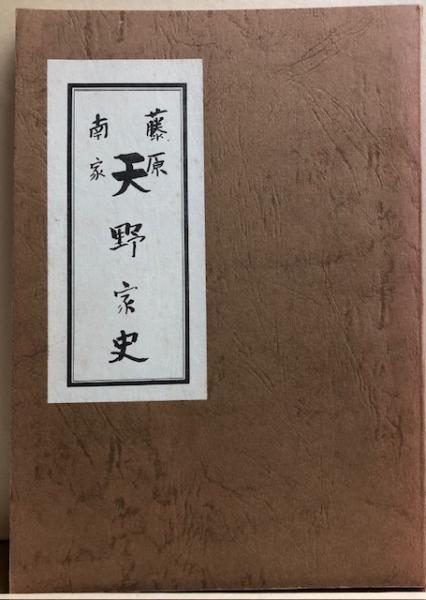 藤原
南家
天野家史